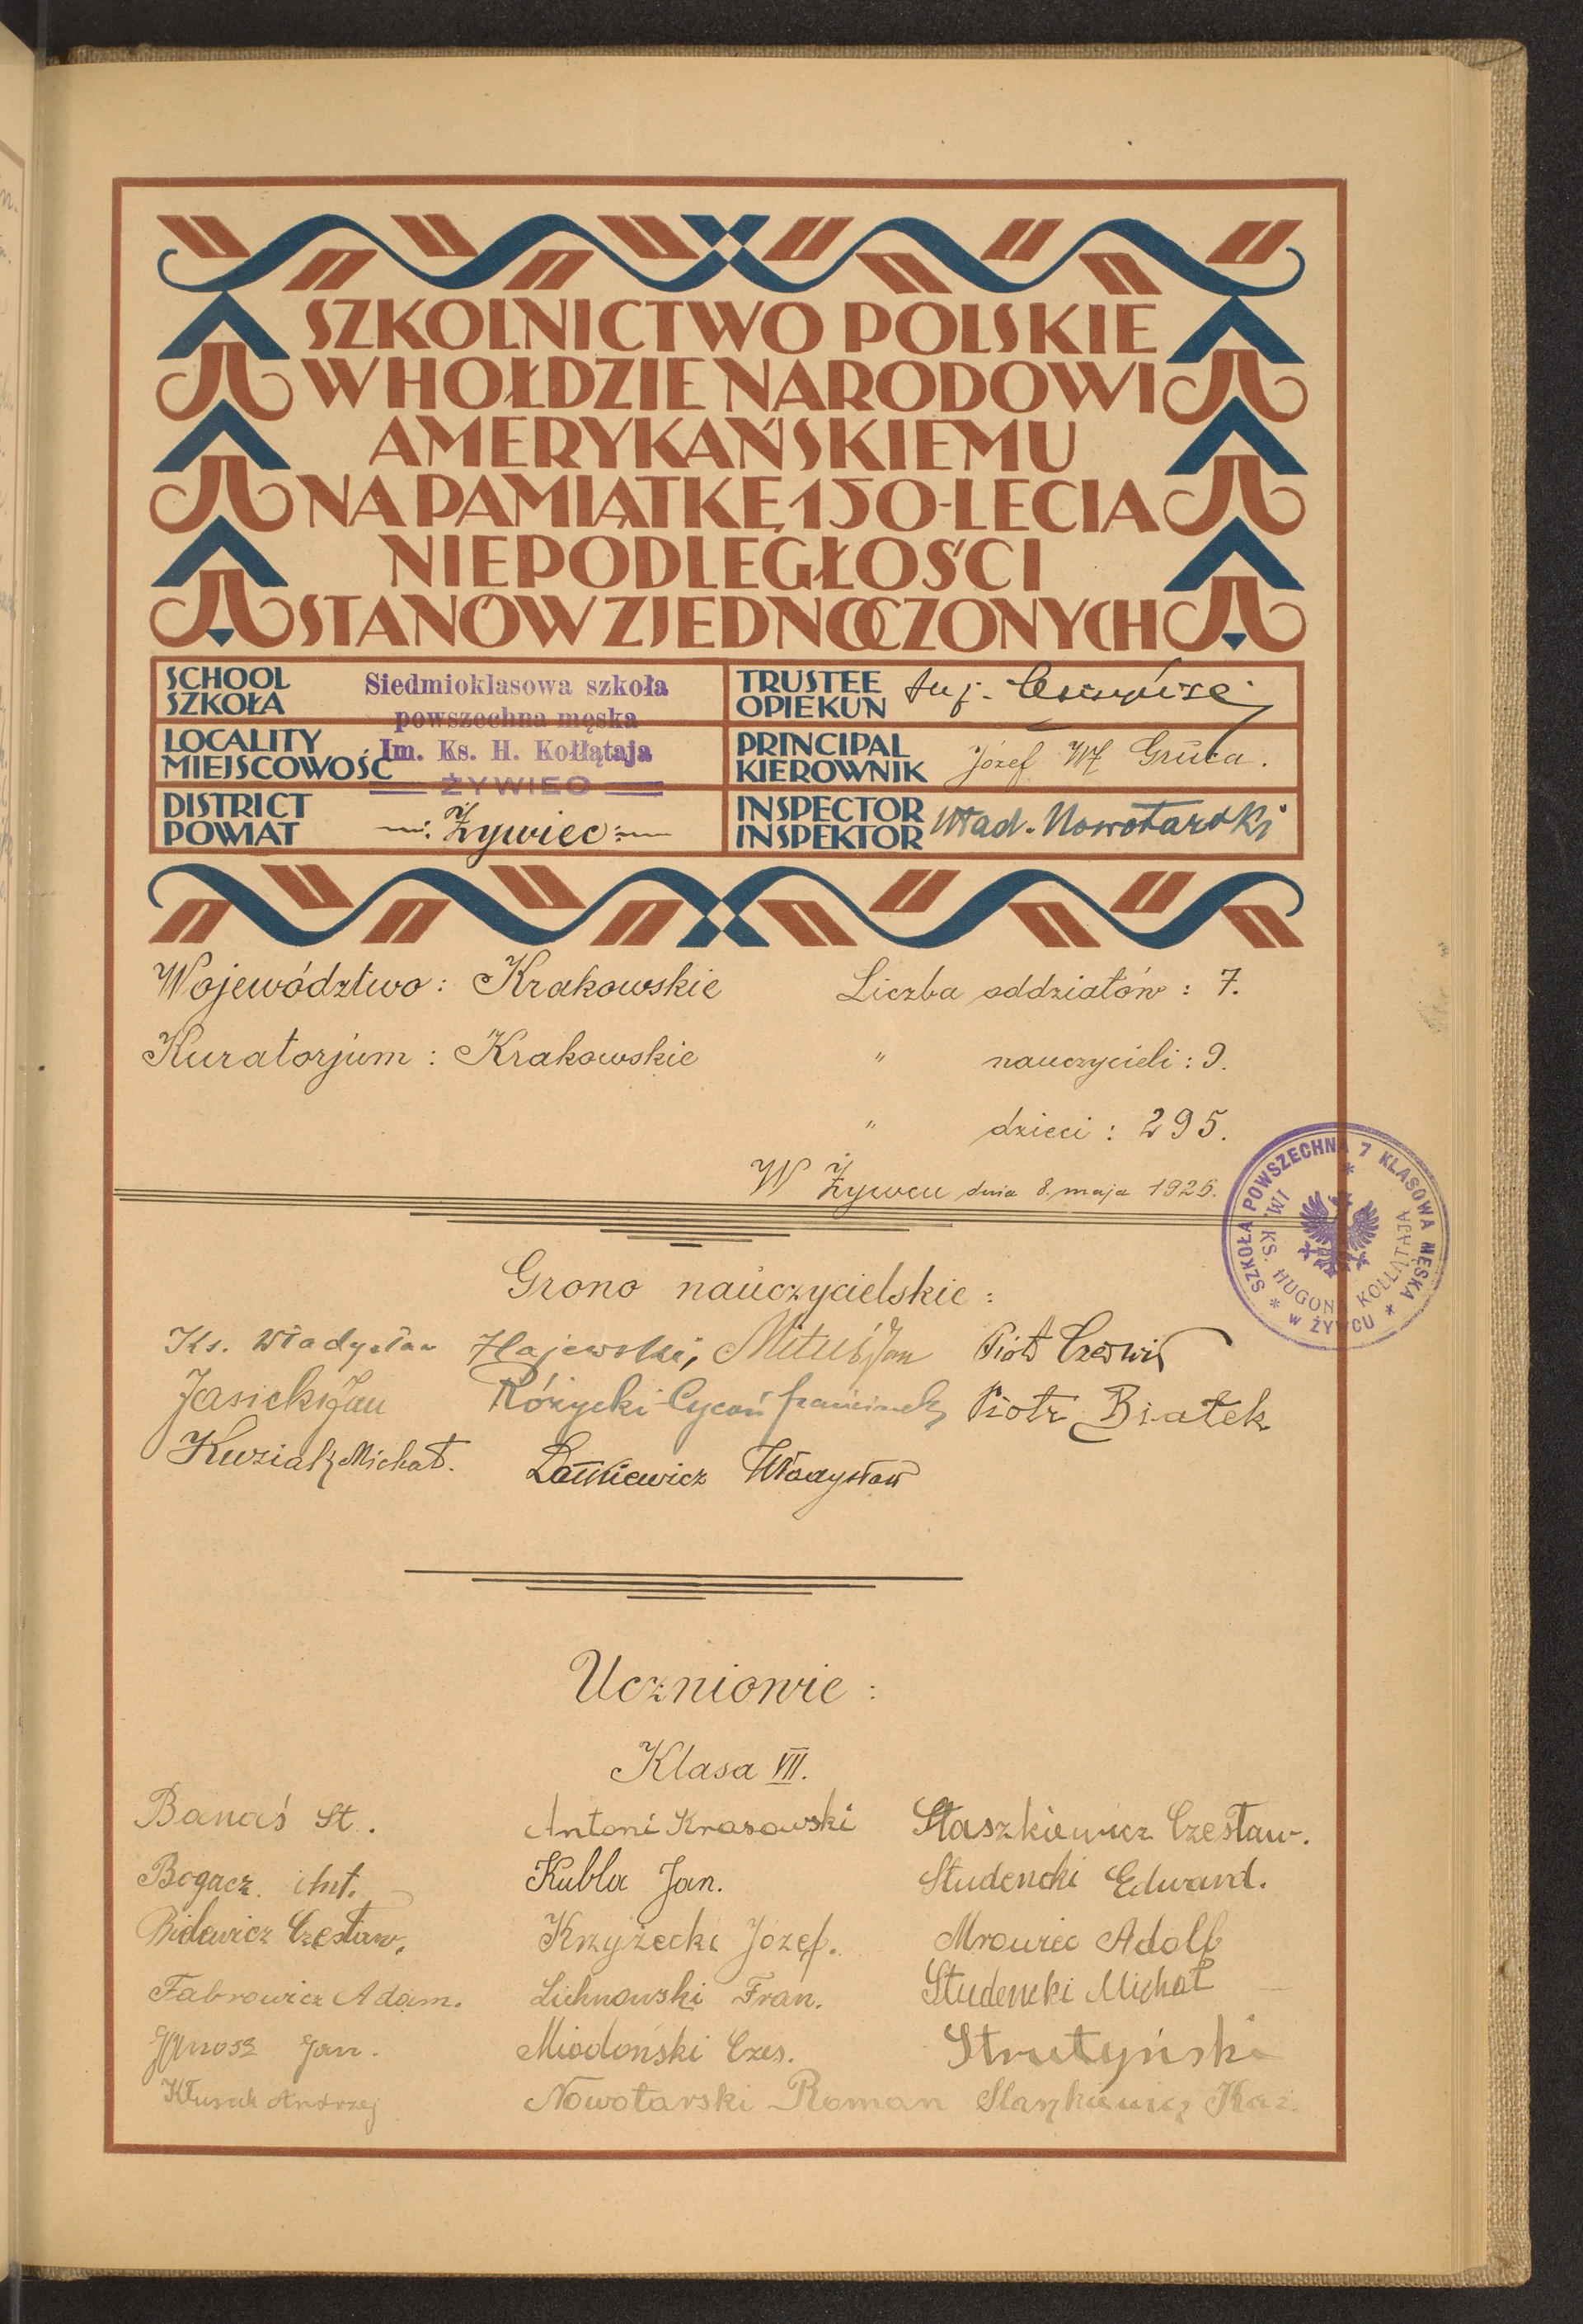 SZKOLNICTWO POLSKIE
W HOŁDZIE NARODOWI
AMERYKAŃSKIEMU
NA PAMIĄTKĘ 150-LECIA
NIEPODLEGŁOŚCI
STANÓW ZJEDNOCZONYCH
SCHOOL
SZKOŁA
Siedmioklasowa szkoła
powszechna męska
Im. Ks. H. Kołłątaja
ŻYWIEC
LOCALITY
MIEJSCOWOŚĆ
DISTRICT
POWIAT
Żywiec
TRUSTEE
OPIEKUN
PRINCIPAL
KIEROWNIK
Józef Wł Gruca.
INSPECTOR
INSPEKTOR
Wład. Nowotarski
Województwo: Krakowskie
Liczba oddziałów: 7.
Kuratorjum: Krakowskie
" nauczycieli: 9.
" dzieci: 295.
W Żywcu dnia 8. maja 1926.
SZKOŁA POWSZECHNA 7 KLASOWA MĘSKA * W ŻYWCU *
IM. KS. HUGONA KOŁŁĄTAJA
Grono nauczycielskie:
Ks. Władysław Hajewski, Mituś Jan Piotr Czerwik
Jasicki Jan Różycki Cycoń Franciszek Piotr Białek
Kuziak Michał. Władysław
Uczniowie:
Klasa VII.
Banaś St. Antoni Krasowski Staszkiewicz Czesław.
Bogacz Ant. Kubla Jan. Studencki Edward.
Bidewicz Czesław. Krzyżecki Józef. Mrowiec Adolf
Fabrowicz Adam. Lichnowski Fran. Studencki Michał
Janosz Jan. Miodoński Czes. Strutyński
Andrzej Nowotarski Roman Staszkiewicz Kaz.